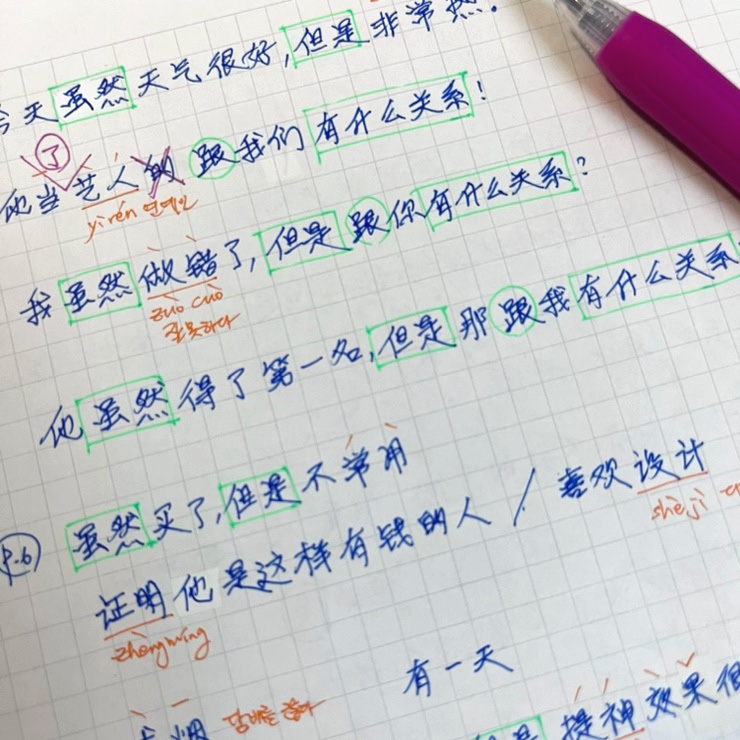 今天虽然天气很好,但是非常热.
了
他当艺人的跟我们有什么关系!
yìrén 연예인
我虽然做错了,但是跟你有什么关系?
zuò cuò
잘못하다
他虽然得了第一名,但是那跟我有什么关系
P.6) 虽然买了,但是不常用
证明他是这样有钱的人 / 喜欢设计
shèjì
zhèngmíng
有一天
烟 담배를 끊다
但是 提神效果很